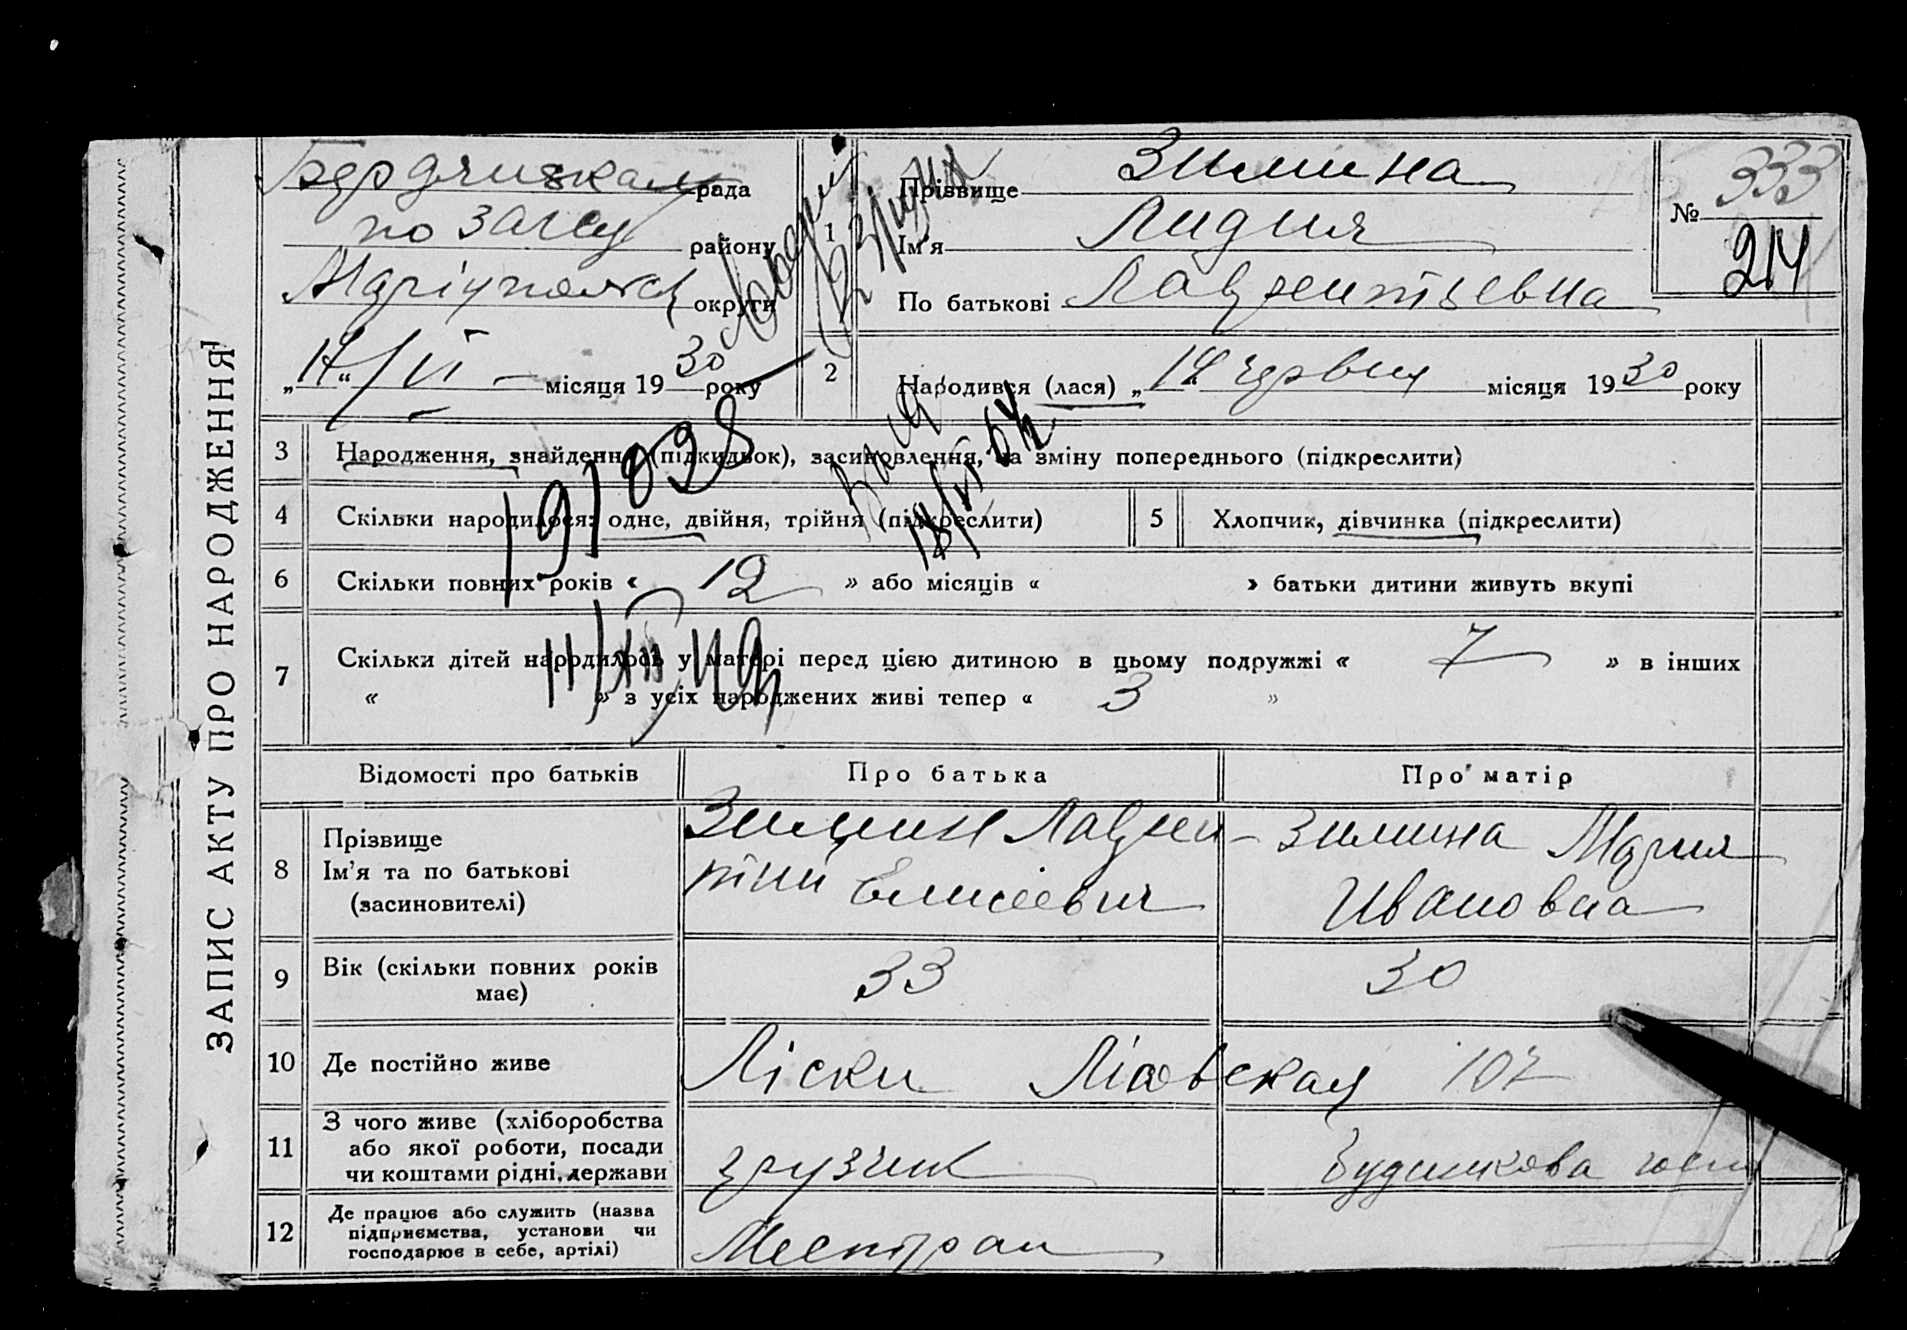 ЗАПИС АКТУ ПРО НАРОДЖЕННЯ
Бердянская рада
по загсу району
Маріупольск округи
місяця 1930 року
1
Прізвище Зимина
Ім'я Лидия
По батькові Лаврентьевна
№ 333
214
2
Народився (лася) „14“ червня місяця 1930 року
3 Народження, знайдення (підкидьок), засиновлення, на зміну попереднього (підкреслити)
4 Скільки народилося: одне, двійня, трійня (підкреслити)
5 Хлопчик, дівчинка (підкреслити)
6 Скільки повних років « 12 » або місяців « » батьки дитини живуть вкупі
7 Скільки дітей народилось у матері перед цією дитиною в цьому подружжі « 7 » в інших
« » з усіх народжених живі тепер « 3 »
Відомості про батьків Про батька Про матір
8 Прізвище
Ім'я та по батькові
(засиновителі)
Зимин Лаврен-
тий Елисеевич
Зимина Мария
Ивановна
9 Вік (скільки повних років
має)
33
30
10 Де постійно живе
Ліски Лісовская 107
11 З чого живе (хліборобства
або якої роботи, посади
чи коштами рідні, держави
грузчик
12 Де працює або служить (назва
підприємства, установи чи
господарює в себе, артілі)
Местран